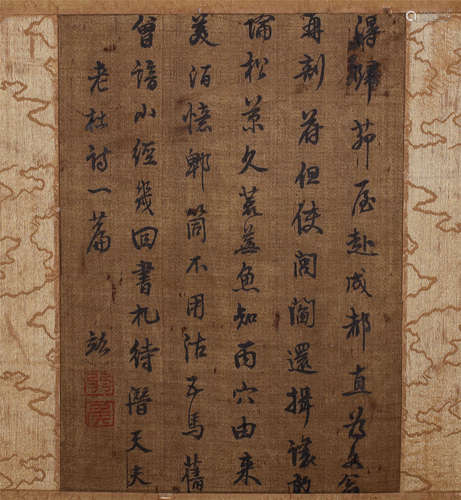 得歸茆屋赴成都直為文翁
再剖符但使閭閻還揖讓敢
論松久荒蕪魚知丙穴由來
美酒憶郫筒不用沽五馬舊
曾諳小經幾回書札待天夫
老杜詩一篇